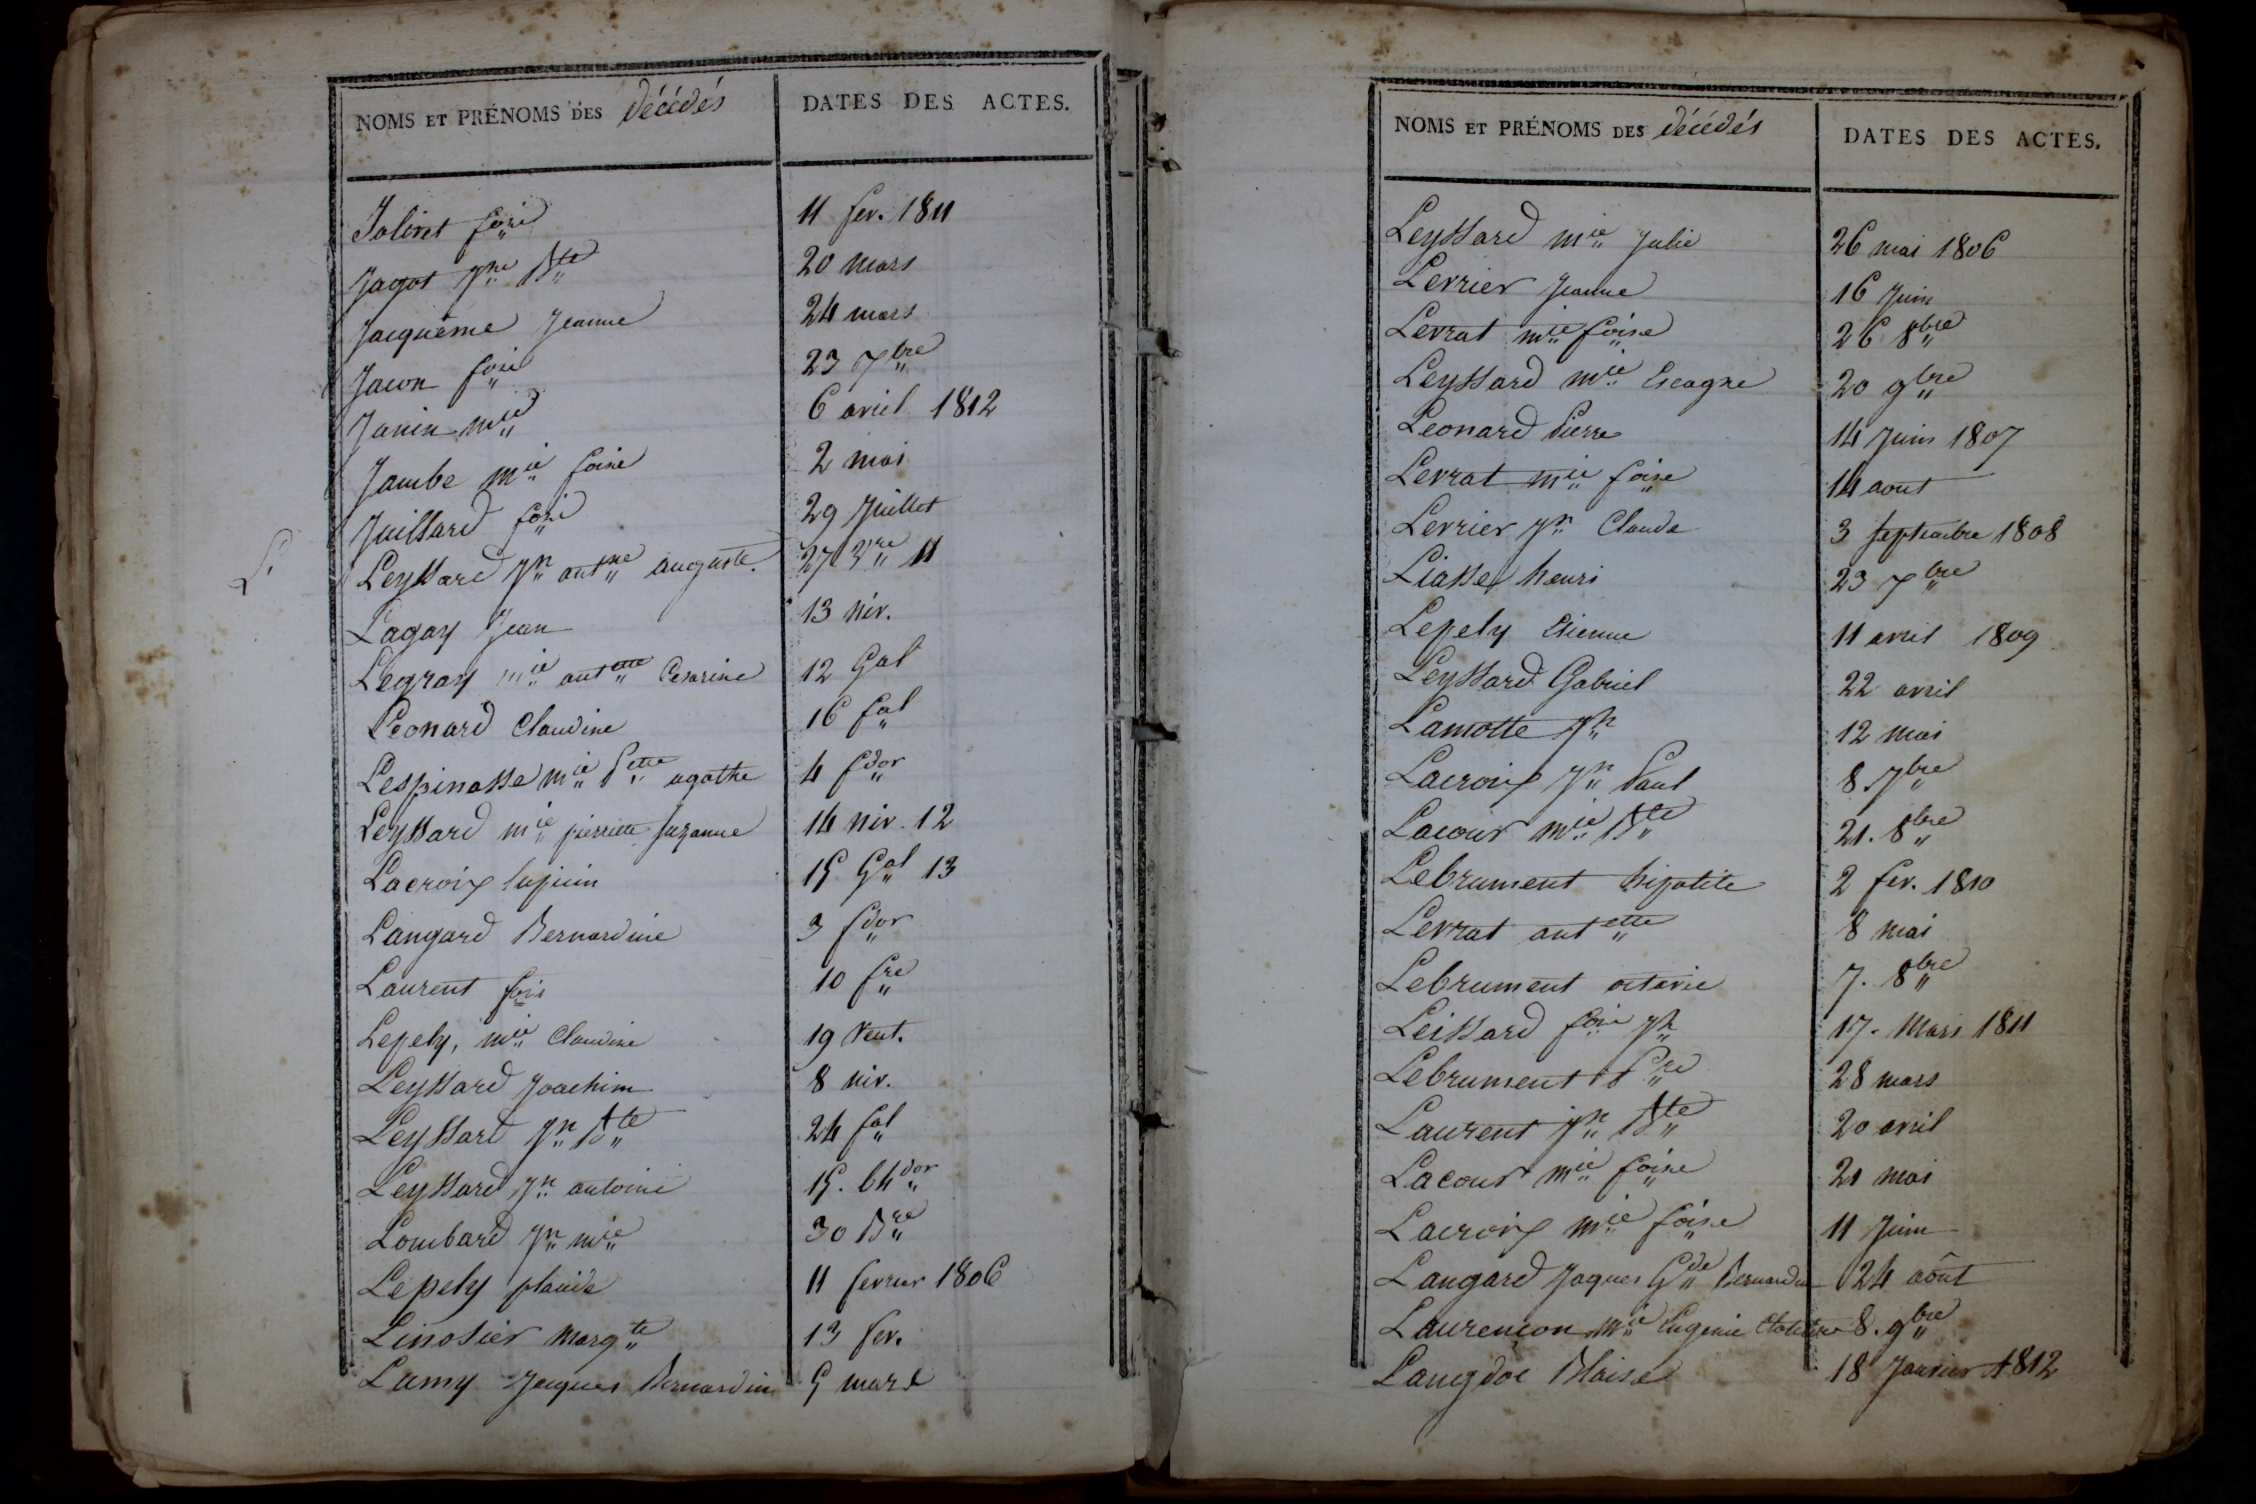 NOMS ET PRÉNOMS DES décédés DATES DES ACTES.
Joliret foise 11 fev. 1811
Jagot Jn Bte 20 mars
Jacquème Jeanne 24 mars
Jacon fois 23 7bre
Janin mie 6 avril 1812
Jambe mie foise 2 mai
Juillard fois 29 Juillet
L. Leyssard Jn antne auguste. 27 3re 11
Lagay Jean 13 niv.
Legray mie antette Cesarine 12 Gal
Leonard Claudine 16 fal
Lespinasse mie Pette agathe 4 fdor
Leyssard mie pierrette suzanne 14 niv. 12
Lacroix 15 Gal 13
Langard Bernardine 3 fdor
Laurent fois 10 fre
Lepely, mie Claudine 19 Vent.
Leyssard Joachim 8 niv.
Leyssard Jn Bte 24 fal
Leyssard Jn antoine 15. thdor
Lombard Jn mie 30 Bre
Lepely placide 11 fevrier 1806
Linossier Margte 13 fev.
Lamy Jacques Bernardin 5 mars
NOMS ET PRÉNOMS DES décédés DATES DES ACTES.
Leyssard mie Julie 26 mai 1806
Levrier Jeanne 16 Juin
Levrat mie foise 26 8bre
Leyssard mie 20 9bre
Leonard Pierre 14 Juin 1807
Levrat mie foise 14 aout
Levrier Jn Claude 3 septembre 1808
Liasse henri 23 7bre
Lepely Etienne 11 avril 1809
Leyssard Gabriel 22 avril
Lamotte Jh 12 mai
Lacroix Jn Paul 8 7bre
Lacour mie Bte 21. 8bre
Lebrument hipolite 2 fev. 1810
Levrat antette 8 mai
Lebrument octavie 7. 8bre
Leissard fois Jh 17. Mars 1811
Lebrument Pre 28 mars
Laurent Jn Bte 20 avril
Lacour mie foise 21 mai
Lacroix mie foise 11 Juin
Langard Jaques Gde Bernardin 24 août
Laurençon mie Eugenie Clotilde 8. 9bre
Langdoc Blaise 18 Janvier 1812